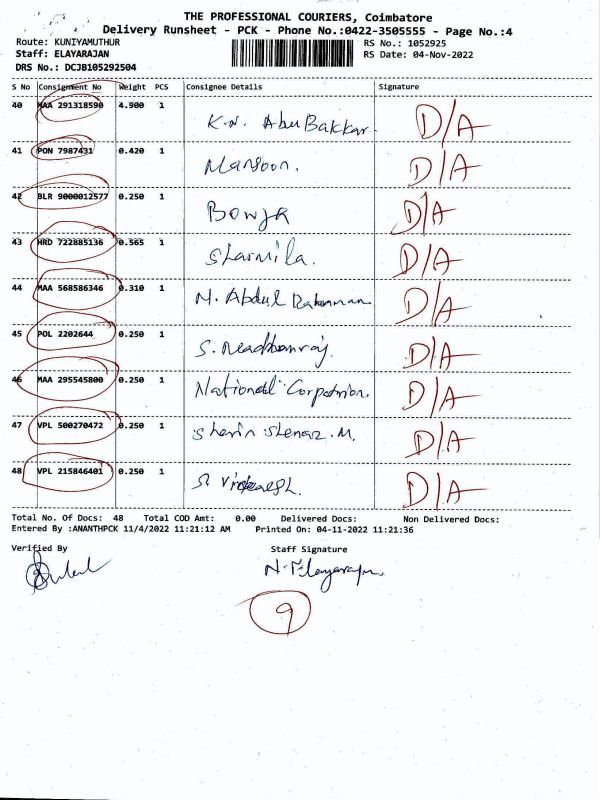 THE PROFESSIONAL COURIERS, Coimbatore
Delivery Runsheet - PCK - Phone No.:0422-3505555 - Page No.:4
Route: KUNIYAMUTHUR RS No.: 1052925
Staff: ELAYARAJAN RS Date: 04-Nov-2022
DRS No.: DCJB105292504
S No Consignment No Weight PCS Consignee Details Signature
40 MAA 291318590 4.900 1 K.N. Abu Bakkar. D/A
41 PON 7987431 0.420 1 Mansoon. D/A
42 BLR 9000012577 0.250 1 D/A
43 HRD 722885136 0.565 1 Sharmila. D/A
44 MAA 568586346 0.310 1 M. Abdul Rahaman D/A
45 POL 2202644 0.250 1 S. D/A
46 MAA 295545800 0.250 1 National D/A
47 VPL 500270472 0.250 1 M. D/A
48 VPL 215846401 0.250 1 S. D/A
Total No. Of Docs: 48 Total COD Amt: 0.00 Delivered Docs: Non Delivered Docs:
Entered By :ANANTHPCK 11/4/2022 11:21:12 AM Printed On: 04-11-2022 11:21:36
Verified By Staff Signature
9